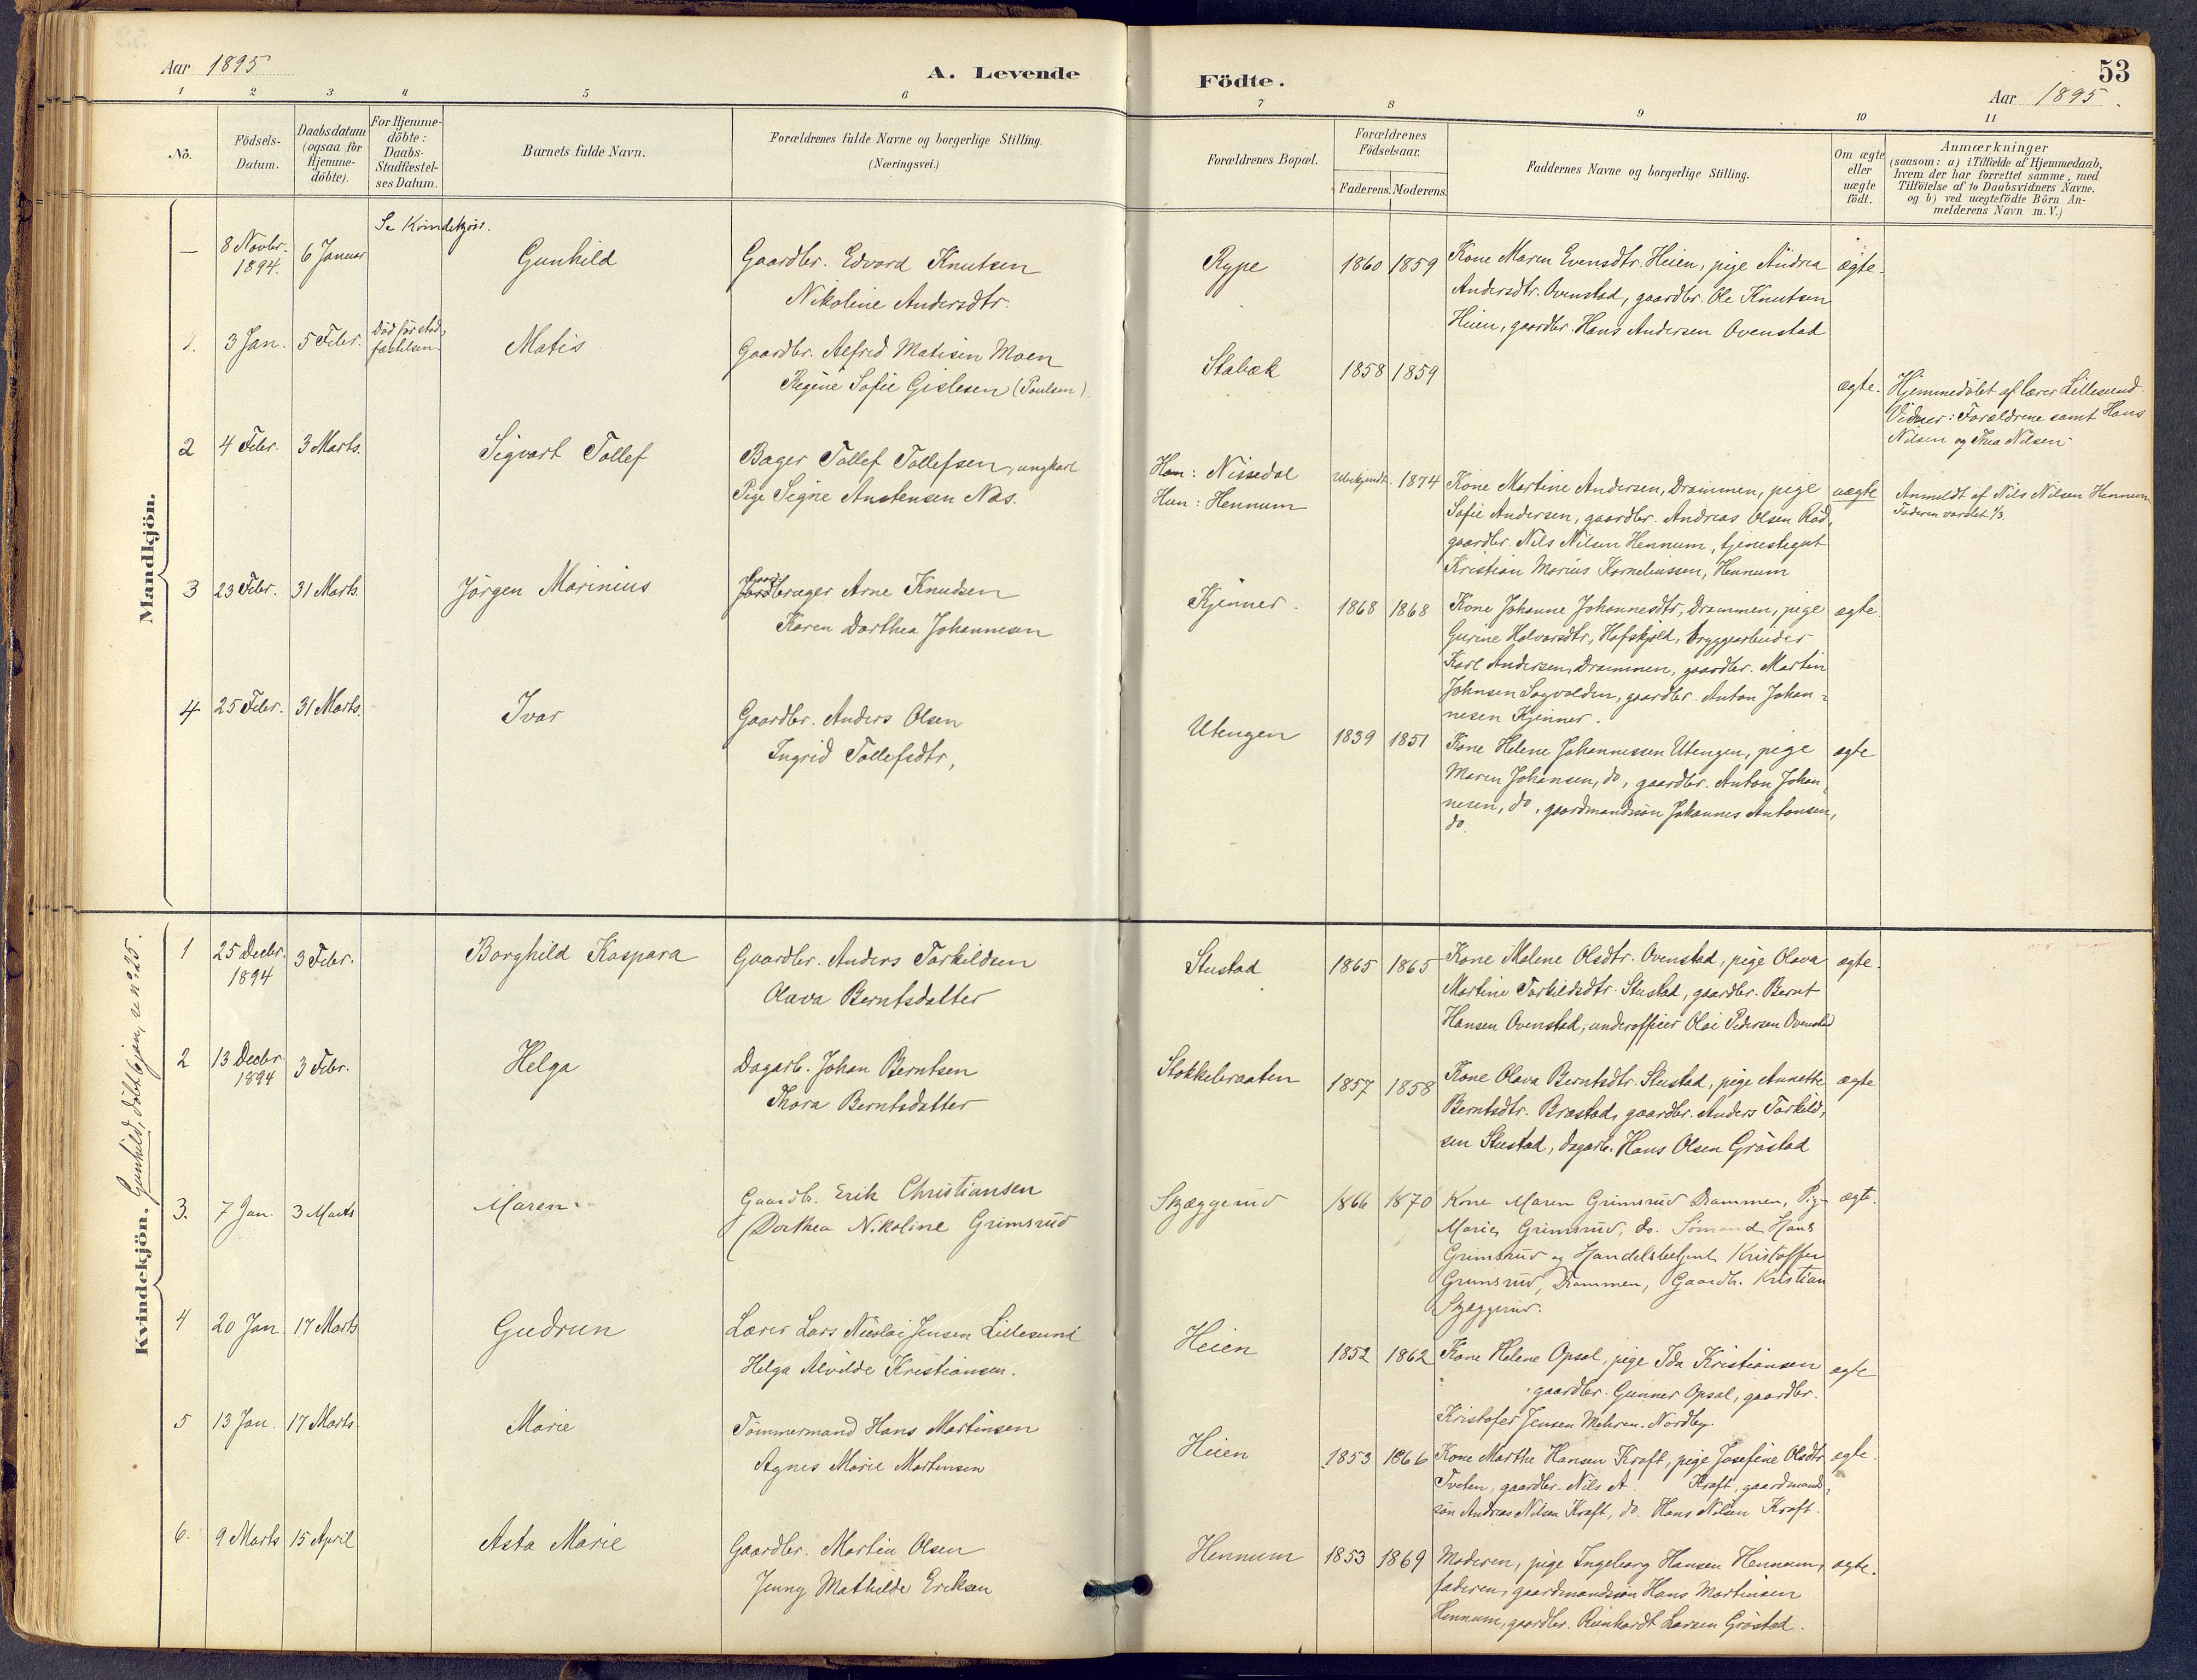 Aar 1895
A. Levende
Födte.
53
Aar 1895.
1 2 3 4 5 6 7 8 9 10 11
No.
Födsels-
Datum.
Daabsdatum
(ogsaa for
Hjemme-
döbte).
For Hjemme-
döbte:
Daabs-
Stadfæstel-
ses Datum.
Barnets fulde Navn.
Forældrenes fulde Navne og borgerlige Stilling.
(Næringsvei.)
Forældrenes Bopæl.
Forældrenes
Födselsaar.
Faderens. Moderens.
Faddernes Navne og borgerlige Stilling.
Om ægte
eller
uægte
födt.
Anmærkninger
(saasom: a) i Tilfælde af Hjemmedaab,
hvem der har forrettet samme, med
Tilföielse af to Daabsvidners Navne.
og b) ved uægtefödte Börn An-
melderens Navn m. V.)
Mandkjön.
Se Kvindekjön.
— 8 Novbr. 1894. 6 Januar Gunhild
Gaardbr. Edvard Knutsen
Nikoline Andersdtr.
Rype 1860 1859
Kone Maren Evensdtr. Heien, pige Andrea
Andersdtr. Ovenstad, gaardbr. Ole Knutsen
Heien, gaardbr. Hans Andersen Ovenstad
ægte.
1. 3 Jan. 5 Febr. Död för stad-
fæstelsen. Matis
Gaardbr. Alfred Matisen Moen
Regine Sofie Gislesen (Poulsen)
Stabæk 1858 1859
ægte.
Hjemmedöbt af lærer Lillesund
Vidner: Forældrene samt Hans
Nilsen og Thea Nilsen.
2 4 Febr. 3 Marts. Sigvart Tollef
Bager Tollef Tollefsen, ungkarl
Pige Signe Austensen Næs.
Han: Nissedal
Hun: Hennum
Ubekjendt. 1874
Kone Martine Andersen, Drammen, pige
Sofie Andersen, gaardbr. Andreas Olsen Röd,
gaardbr. Nils Nilsen Hennum, tjenestegut
Kristian Marius Korneliussen, Hennum
uægte
Anmeldt af Nils Nilsen Hennum
Faderen varslet 1/3.
3 23 Febr. 31 Marts. Jörgen Marinius
Gaardbruger Arne Knudsen
Karen Dorthea Johannesen
Kjenner. 1868 1868
Kone Johanne Johannesdtr, Drammen, pige
Gurine Halvorsdtr, Hafskjold, bryggearbeider
Karl Andersen, Drammen, gaardbr. Martin
Johnsen Sagvolden, gaardbr. Anton Johan-
nesen Kjenner.
ægte.
4 25 Febr. 31 Marts. Ivar
Gaardbr. Anders Olsen
Ingrid Tollefsdtr,
Utengen 1839 1851
Kone Helene Johannessen Utengen, pige
Maren Johansen, do, gaardbr. Anton Johan-
nesen, do, gaardmandssön Johannes Antonsen,
do.
ægte
Kvindekjön.
Gunhild, döbt 6 jan, se no 25.
1 25 Decbr. 1894 3 Febr. Borghild Kaspara
Gaardbr. Anders Torkildsen
Olava Berntsdatter
Stustad 1865 1865
Kone Malene Olsdtr. Ovenstad, pige Olava
Martine Torkildsdtr. Stustad, gaardbr. Bernt
Hansen Ovenstad, underofficer Olai Pedersen Ovenstad
ægte.
2 13 Decbr 1894 3 Febr. Helga
Dagarb. Johan Berntsen
Thora Berntsdatter
Stokkebraaten 1857 1858
Kone Olava Berntsdtr. Stustad, pige Annette
Berntsdtr. Brastad, gaardbr. Anders Torkild-
sen Stustad, dagarb. Hans Olsen Gröstad
ægte
3. 7 Jan. 3 Marts Maren.
Gaardb. Erik Christiansen
Dorthea Nikoline Grimsrud
Skjæggerud 1866 1870
Kone Maren Grimsrud Drammen, Pige
Marie Grimsrud, do. Sömand Hans
Grimsrud og Handelsbetjent Kristoffer
Grimsrud, Drammen, Gaardb. Kristian
Skjæggerud.
ægt.
4 20 Jan. 17 Marts Gudrun
Lærer Lars Nicolai Jensen Lillesund
Helga Alvilde Kristiansen.
Heien 1852 1862
Kone Helene Opsal, pige Ida Kristiansen
, gaardbr. Gunner Opsal, gaardbr.
Kristofer Jensen Mehren. Nordby.
ægte
5 13 Jan. 17 Marts Marie
Tömmermand Hans Martinsen
Agnes Marie Mortensen
Heien 1853 1866
Kone Marthe Hansen Kraft, pige Josefine Olsdtr
Tveten, gaardbr. Nils A. Kraft, gaardmand-
sön Andreas Nilsen Kraft, do. Hans Nilsen Kraft.
ægte.
6. 9 Marts 15 April Asta Marie
Gaardbr. Martin Olsen
Jenny Mathilde Eriksen
Hennum 1853 1869
Moderen, pige Ingeborg Hansen Hennum,
faderen, gaardmandssön Hans Martinsen
Hennum, gaardbr. Reinhardt Larsen Gröstad.
ægte.